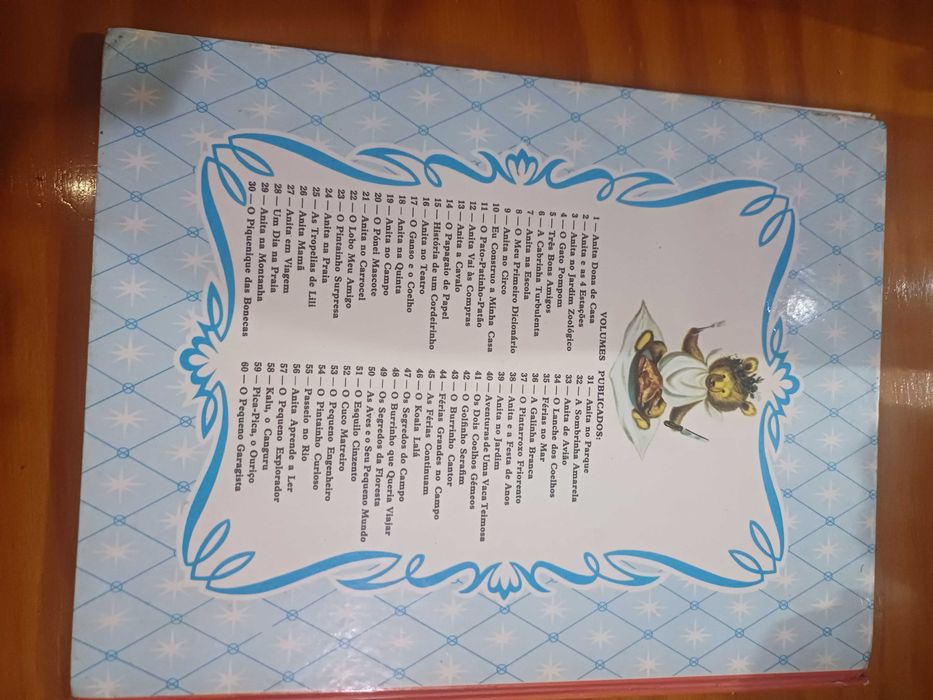 VOLUMES PUBLICADOS:
1 — Anita Dona de Casa
2 — Anita e as 4 Estações
3 — Anita no Jardim Zoológico
4 — O Gato Pompom
5 — Três Bons Amigos
6 — A Cabrinha Turbulenta
7 — Anita na Escola
8 — O Meu Primeiro Dicionário
9 — Anita no Circo
10 — Eu Construo a Minha Casa
11 — O Pato-Patinho-Patão
12 — Anita Vai às Compras
13 — Anita a Cavalo
14 — O Papagaio de Papel
15 — História de um Cordeirinho
16 — Anita no Teatro
17 — O Ganso e o Coelho
18 — Anita na Quinta
19 — Anita no Campo
20 — O Pónei Mascote
21 — Anita no Carrocel
22 — O Lobo Meu Amigo
23 — O Pintainho Surpresa
24 — Anita na Praia
25 — As Tropelias de Lili
26 — Anita Mamã
27 — Anita em Viagem
28 — Um Dia na Praia
29 — Anita na Montanha
30 — O Piquenique das Bonecas
31 — Anita no Parque
32 — A Sombrinha Amarela
33 — Anita de Avião
34 — O Lanche dos Coelhos
35 — Férias no Mar
36 — A Galinha Branca
37 — O Pintarroxo Friorento
38 — Anita e a Festa de Anos
39 — Anita no Jardim
40 — Aventuras de Uma Vaca Teimosa
41 — Os Dois Coelhos Gémeos
42 — O Golfinho Serafim
43 — O Burrinho Cantor
44 — Férias Grandes no Campo
45 — As Férias Continuam
46 — O Koala Lalá
47 — Os Segredos do Campo
48 — O Burrinho que Queria Viajar
49 — Os Segredos da Floresta
50 — As Aves e o Seu Pequeno Mundo
51 — O Esquilo Cinzento
52 — O Cuco Matreiro
53 — O Pequeno Engenheiro
54 — O Pintainho Curioso
55 — Passeio no Rio
56 — Anita Aprende a Ler
57 — O Pequeno Explorador
58 — Kalu, o Canguru
59 — Pica-Pica, o Ouriço
60 — O Pequeno Garagista